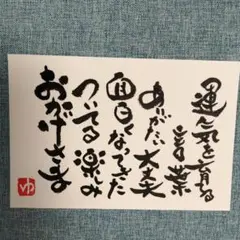 運気を育てる
言葉
ありがたい 大丈夫
面白くなってきた
ついてる 楽しみ
おかげさま
ゆ